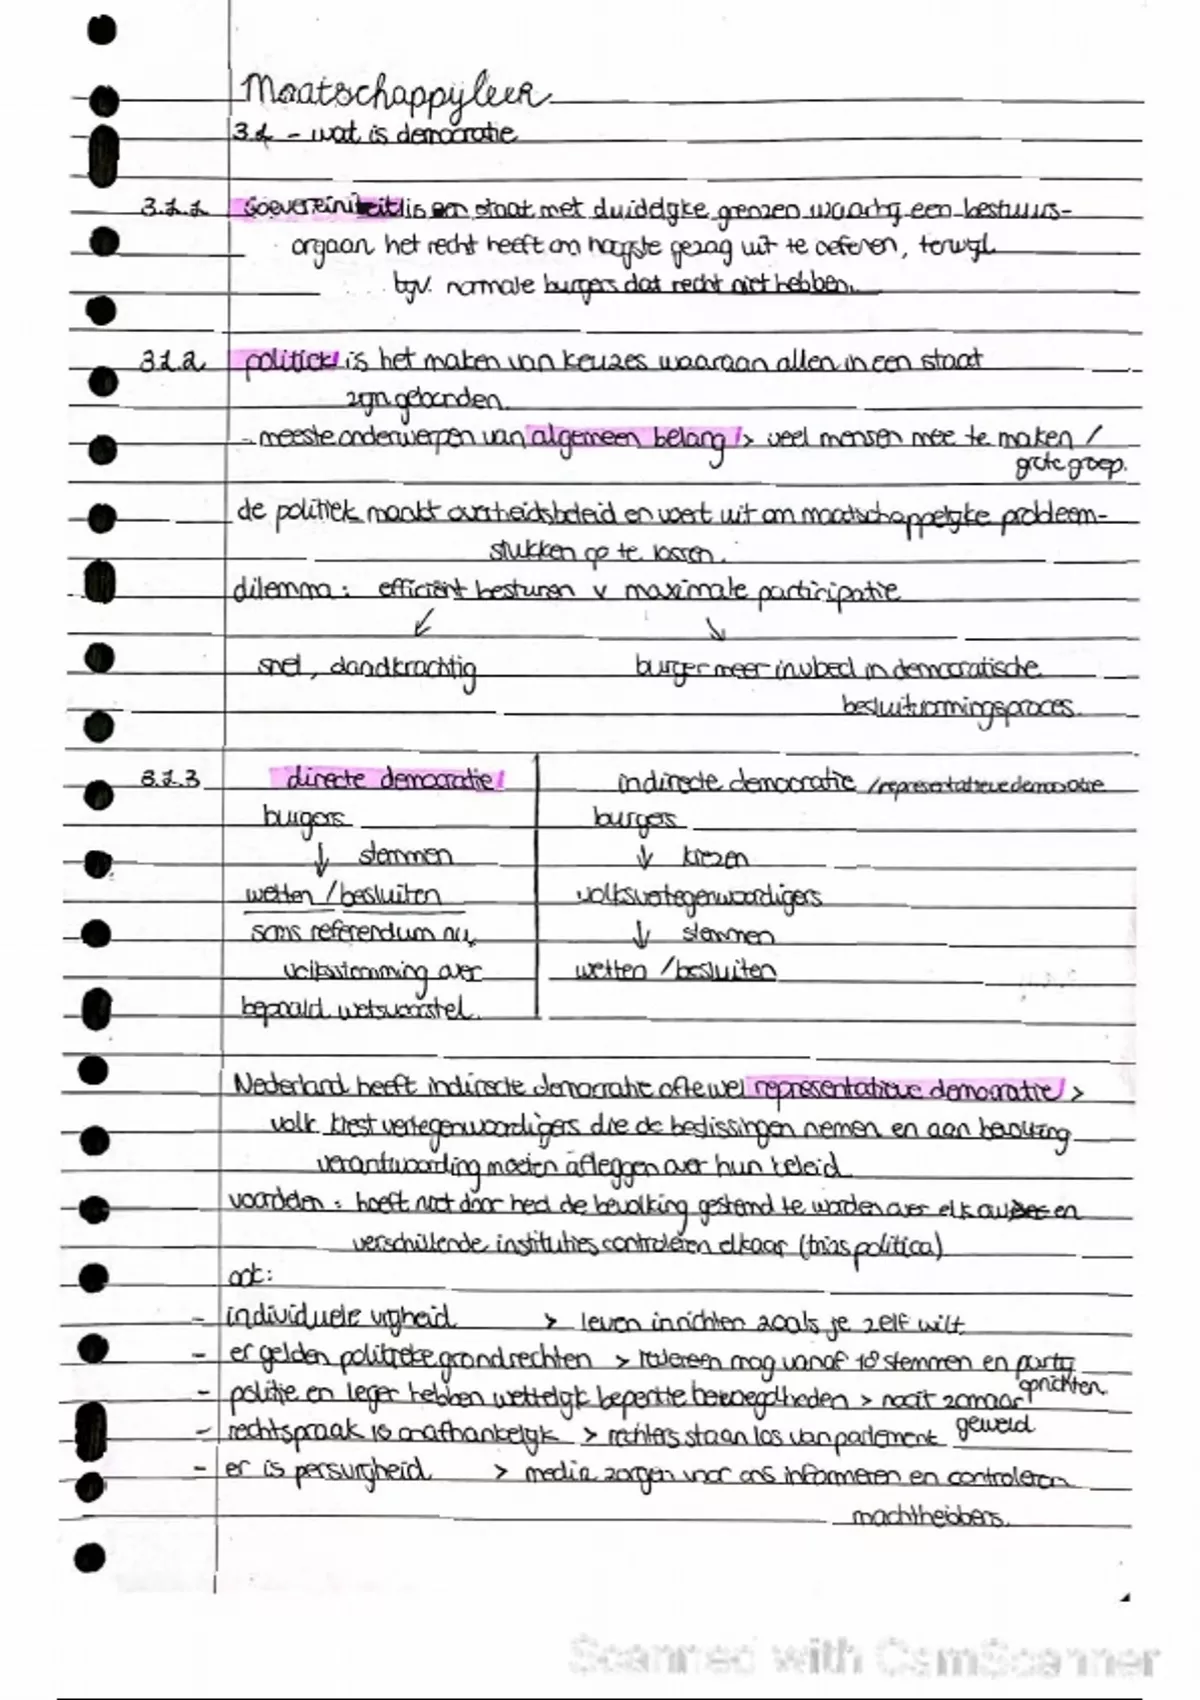 Maatschappijleer
3.1 - wat is democratie
3.1.1 soevereiniteit is een staat met duidelijke grenzen waarbij een bestuurs-
orgaan het recht heeft om hoogste gezag uit te oefenen, terwijl
bijv. normale burgers dat recht niet hebben.
3.1.2 politiek is het maken van keuzes waaraan allen in een staat
zijn gebonden.
- meeste onderwerpen van algemeen belang > veel mensen mee te maken /
grote groep.
de politiek maakt overheidsbeleid en voert uit om maatschappelijke probleem-
stukken op te lossen.
dilemma: efficiënt besturen v maximale participatie
↙ ↘
snel, daadkrachtig burger meer invloed in democratische
besluitvormingsproces.
3.1.3 directe democratie indirecte democratie /representatieve democratie
burgers burgers
↓ stemmen ↓ kiezen
wetten / besluiten volksvertegenwoordigers
soms referendum nu, ↓ stemmen
volksstemming over wetten / besluiten
bepaald wetsvoorstel.
Nederland heeft indirecte democratie oftewel representatieve democratie >
volk kiest vertegenwoordigers die de beslissingen nemen en aan bevolking
verantwoording moeten afleggen over hun beleid
voordelen: hoeft niet door heel de bevolking gestemd te worden over elk en
verschillende instituties controleren elkaar (trias politica)
ook:
- individuele vrijheid > leven inrichten zoals je zelf wilt
- er gelden politieke grondrechten > iedereen mag vanaf 18 stemmen en partij
oprichten.
- politie en leger hebben wettelijk beperkte bevoegdheden > nooit zomaar
geweld
- rechtspraak is onafhankelijk > rechters staan los van parlement
- er is persvrijheid > media zorgen voor ons informeren en controleren
machthebbers.
Scanned with CamScanner